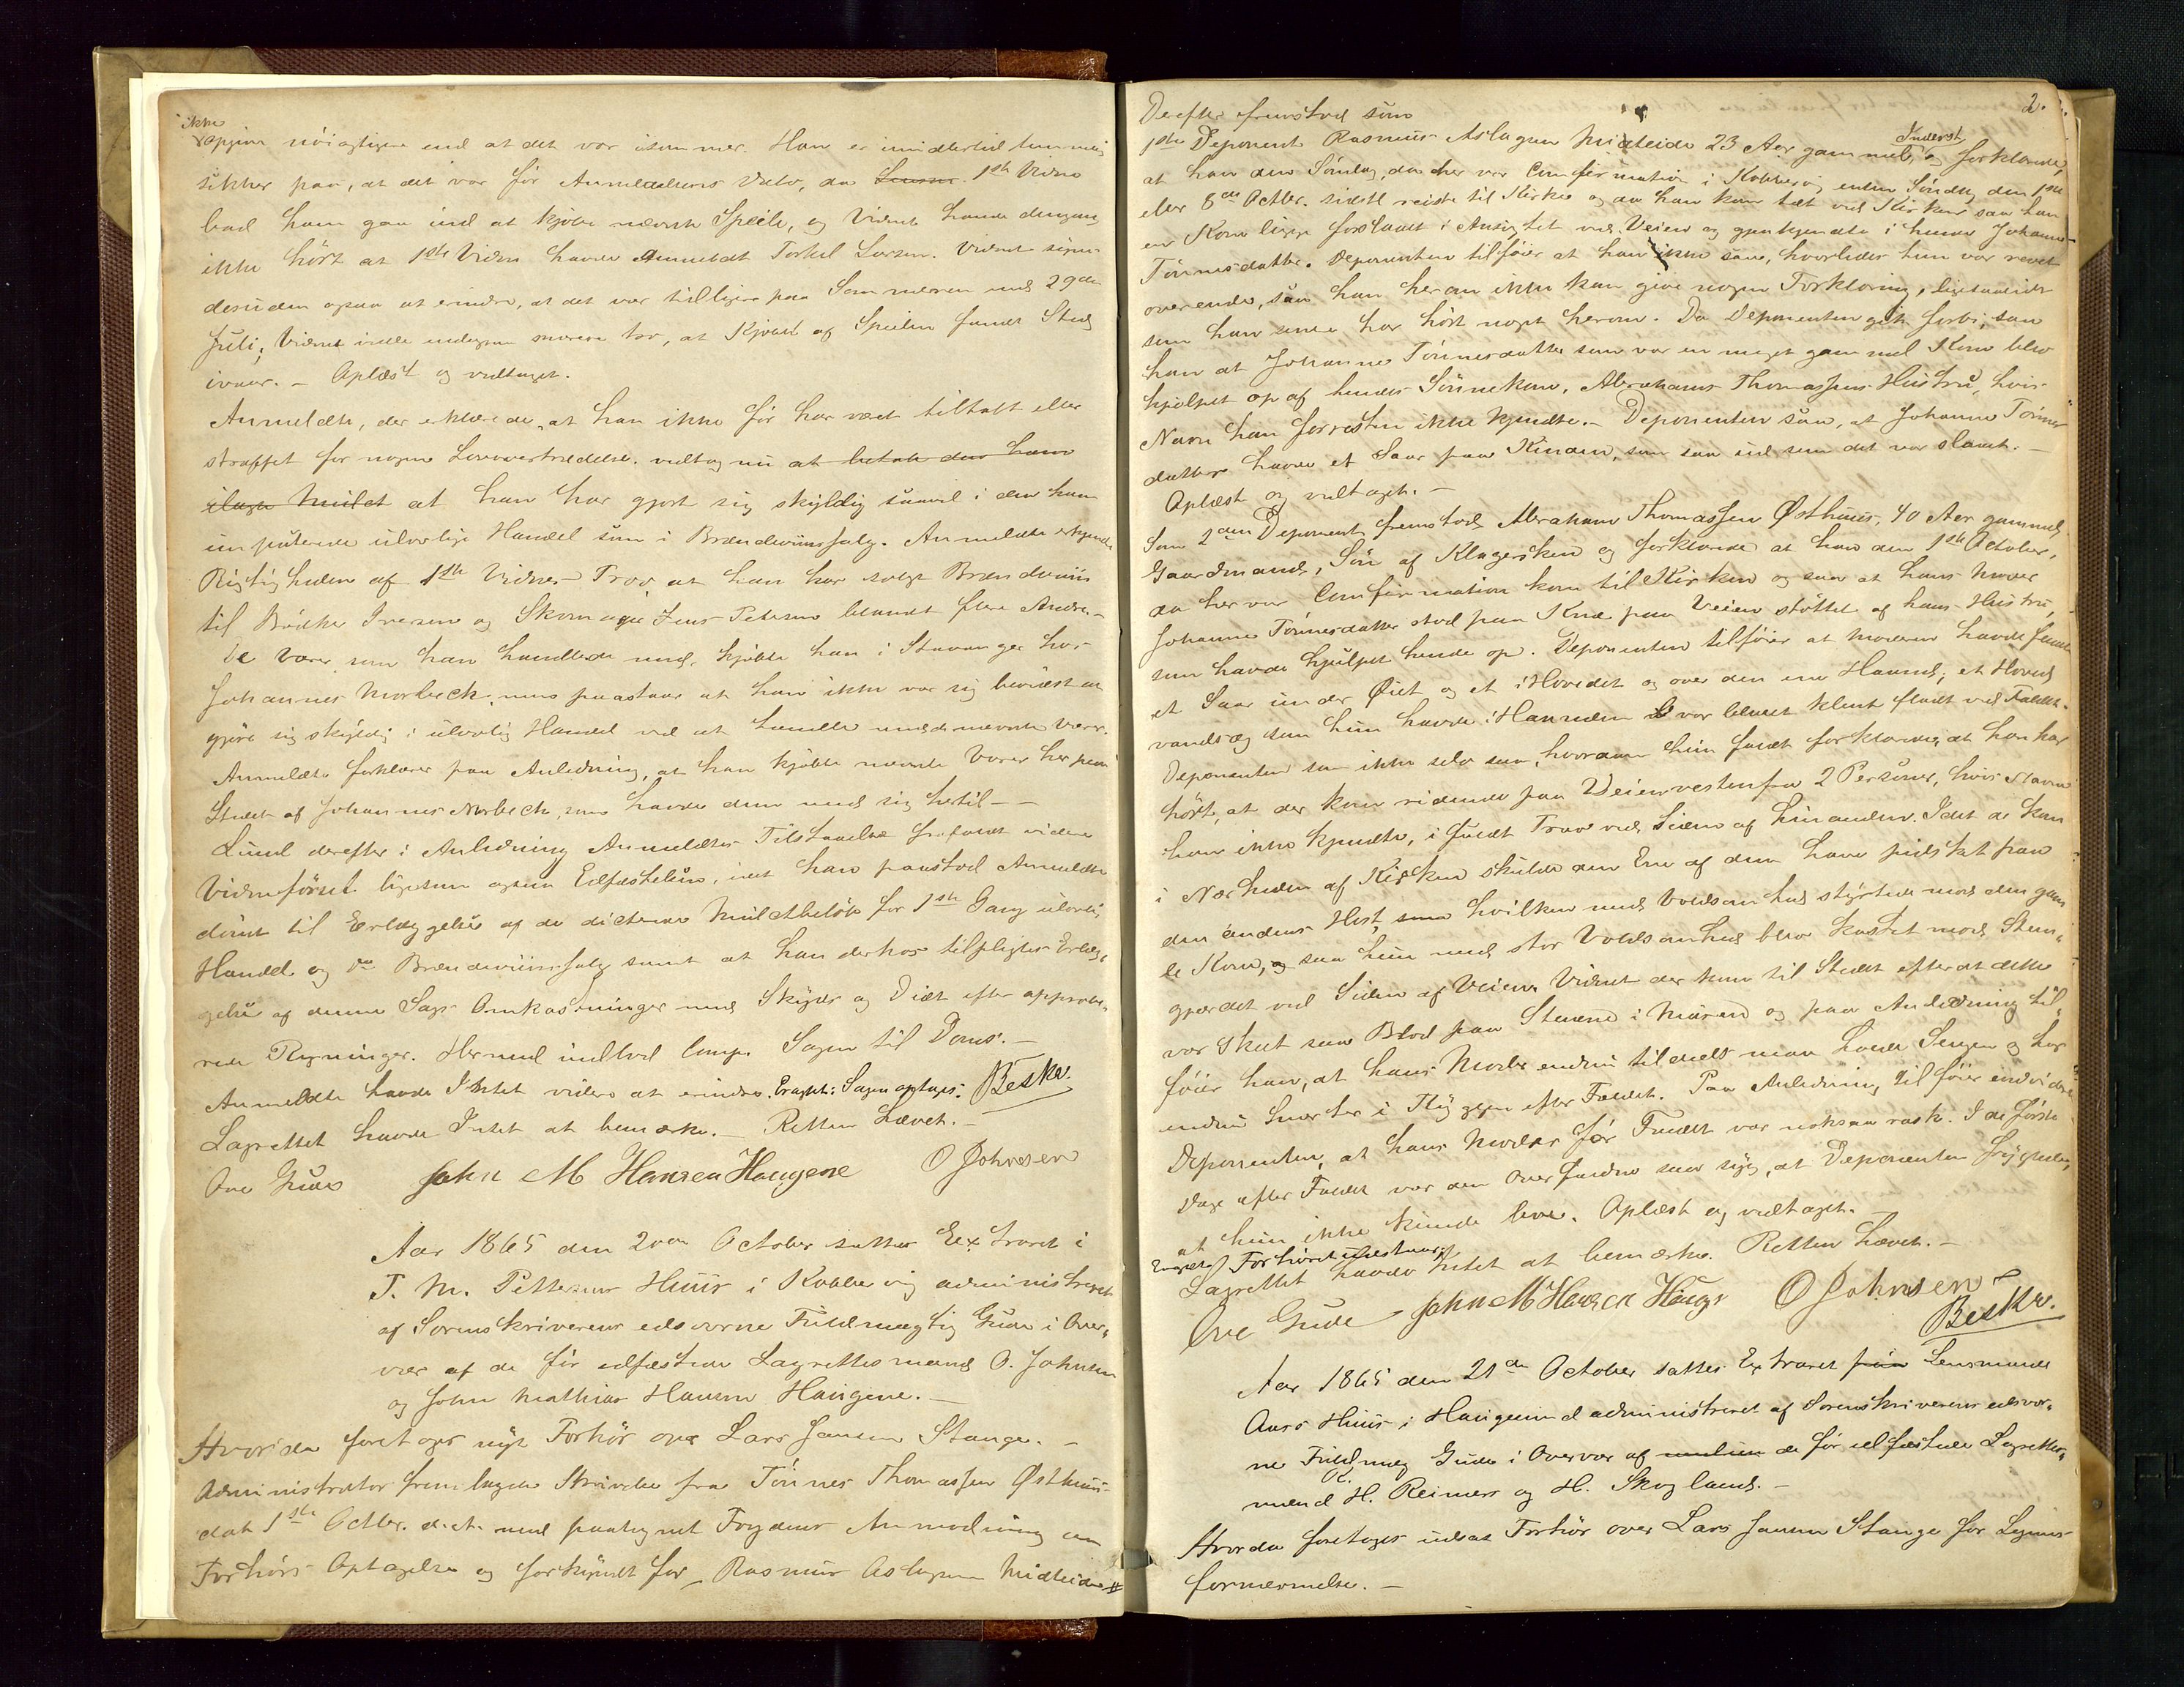 ikke
opgive nöiagtigere end at det var isommer. Han er imidlertid temmelig
sikker paa, at det var för Anmeldelsens Dato, da 1ste Vidne
bad ham gaa ind at kjöbe nævnte Speile, og Vidnet havde dengang
ikke hört at 1ste Vidne havde Anmeldt Torkel Larsen. Vidnet synes
desuden ogsaa at erindre, at det var tidligere paa Sommeren end 29de
Juli; Vidnet vilde endogsaa snarere tro, at Kjöbet af Speilen fandt Sted
ivaar. – Oplæst og vedtaget.
Anmeldte, der erklærede, at han ikke för har været tiltalt eller
straffet for nogen Lovovertrædelse, vedtog nu at betale den ham
ilagte Mulct at han har gjort sig skyldig saavel i den ham
imputerede ulovlige Handel som i Brændeviinssalg. Anmeldte erkjendte
Rigtigheden af 1ste Vidnes Prov at han har solgt Brændeviin
til Bödker Iversen og Skomager Jens Petersen blandt flere Andre. –
De Varer som han handlede med, kjöbte han i Stavanger hos
Johannes Norbech, men paastaar at han ikke var sig bevidst at
gjöre sig skyldig i ulovlig Handel ved at handle med de nævnte Varer.
Anmeldte forklarer paa Anledning, at han kjöbte nævnte Varer her paa
Stedet af Johannes Norbech, som havde dem med sig hertil. –
Lund derefter i Anledning Anmeldtes Tilstaaelse frafaldt videre
Vidneförsel ligesom ogsaa Edfæstelse, idet han paastod Anmeldte
dömt til Erlæggelse af de dicterede Mulctbelöb for 1ste Gang ulovlig
Handel og do Brændeviinssalg samt at han derhos tilpligtes Erlæg-
gelse af denne Sags Omkostninger med Skyds og Diæt efter approbe-
rede Regninger. Hermed indlod Comp. Sagen til Doms. –
Anmeldte havde Intet videre at erindre. Eragtet: Sagen optages. Beskr.
Lagrettet havde Intet at bemærke. – Retten hævet. –
Ove Gude John M Hansen Haugene O Johnsen
Aar 1865 den 20de October sattes Extraret i
T. M. Pettersens Huus i Kobbervig administreret
af Sorenskriverens edsvorne Fuldmægtig Gude i Over-
vær af de för edfæstede Lagrettesmænd O. Johnsen
og John Mathias Hansen Haugene. –
Hvorda foretoges nyt Forhör over Lars Jansen Stange. –
Administrator fremlagde Skrivelse fra Tönnes Thomassen Østhuus
dat 1ste Octbr. d.A. med paategnet Fogdens Anmodning om
Forhörs Optagelse og forkyndt for Rasmus Aslagsen Midteide #
2.
Derefter fremstod som
1ste Deponent Rasmus Aslagsen Midteide 23 Aar gammel, Inderst, og forklarede,
at han den Söndag, da her var Confirmation i Kobbervig enten Söndag den 1ste
eller 8de Octbr. sidstl. reiste til Kirke og da han kom tæt ved Kirken saa han
en Kone ligge forslaaet i Ansigtet ved Veien og gjenkjendte i hende Johanne
Tönnesdatter. Deponenten tilföier at han ikke saae, hvorledes hun var revet
overende, saa han heraf ikke kan give nogen Forklaring, ligesaalidt
som han senere har hört noget herom. Da Deponenten gik forbi, saa
han at Johanne Tönnesdatter som var en meget gammel Kone blev
hjulpet op af hendes Sönnekone, Abrahams Thomassens Hustru, hvis
Navn han forresten ikke kjendte. – Deponenten saa, at Johanne Tönnes-
datter havde et Saar paa Kinden, som saa ud som det var slaaet. –
Oplæst og vedtaget. –
Som 2den Deponent fremstod Abraham Thomassen Østhuus, 40 Aar gammel
Gaardmand, Sön af Klagersken og forklarede at han den 1ste October,
da her var Confirmation kom til Kirken og saa at hans Moder
Johanne Tönnesdatter stod paa Knæ paa Veien stöttet af hans Hustru,
som havde hjulpet hende op. Deponenten tilföier at Moderen havde faaet
et Saar under Öiet og et i Hovedet og over den ene Haand; et Hoved-
vandsæg som hun havde i Haanden var blevet klemt fladt ved Faldet.
Deponenten som ikke selv saa, hvordan hun faldt forklarede, at han har
hört, at der kom ridende paa Veien vestenfra 2 Personer, hvis Navne
han ikke kjendte, i fuldt Trav ved Siden af hinanden. Idet de kom
i Nærheden af Kirken skulde den Ene af dem have pidsket paa
den andens Hest, hvilken med Voldsomhed styrtede mod den gam-
le Kone, og saa hun med stor Voldsomhed blev kastet mod Steen-
gjerdet ved Siden af Veien. Vidnet der kom til Stedet efterat dette
var skeet saa Blod paa Stenene i Muren og paa Anledning til-
föier han, at hans Moder endnu tildeels maa holde Sengen og har
endnu Smerter i Ryggen efter Faldet. Paa Anledning tilföier endvidere
Deponenten, at hans Moder för Faldet var noksaa rask. I de förste
Dage efter Faldet var den Overfaldne saa syg, at Deponenten frygtede,
at hun ikke kunde leve. Oplæst og vedtaget. –
Eragtet: Forhöret udestaar.
Lagrettet havde Intet at bemærke. Retten hævet. –
Ove Gude John M Hansen Haugene O Johnsen
Beskr.
Aar 1865 den 21de October sattes Extraret paa Lensmand
Aars Huus i Haugesund administreret af Sorenskriverens edsvor-
ne Fuldmæg Gude i Overvær af de för edfæstede Lagrettes-
mænd H. R. Reimers og H. Skogland. –
Hvorda foretoges udsat Forhör over Lars Jansen Stange for Legems-
fornærmelse. –